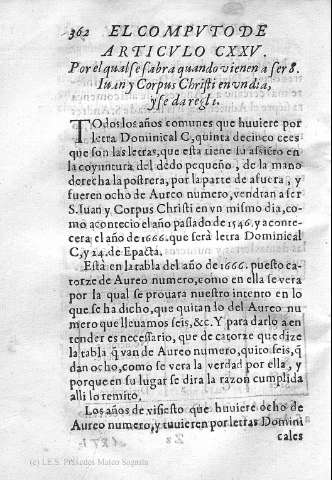 362 EL COMPVTO DE
ARTICVLO CXXV.
Por el qual se sabra quando vienen a ser S.
Iuan y Corpus Christi en vn dia,
y se da regla.
TOdos los años comunes que huuiere por
letra Dominical C, quinta de cinco cees
que son las letras, que esta tiene su assiẽto en
la coyuntura del dedo pequeño, de la mano
derecha la postrera, por la parte de afuera, y
fueren ocho de Aureo numero, vendran a ser
S. Iuan y Corpus Christi en vn mismo dia, co-
mo acontecio el año passado de 1546. y aconte-
cera el año de 1666. que serà letra Dominical
C, y 24. de Epacta.
Està en la tabla del año de 1666. puesto ca-
torze de Aureo numero, como en ella se vera
por la qual se prouara nuestro intento en lo
que se ha dicho, que quitan lo del Aureo nu
mero que lleuamos seis, &c. Y para darlo a en
tender es necessario, que de catorze que dize
la tabla q̃ van de Aureo numero, quito seis, q̃
dan ocho, como se vera la verdad por ella, y
porque en su lugar se dira la razon cumplida
alli lo remito.
Los años de visiesto que huuiere ocho de
Aureo numero, y tuuieren por letras Domini
cales
(c) I.E.S. Práxedes Mateo Sagasta